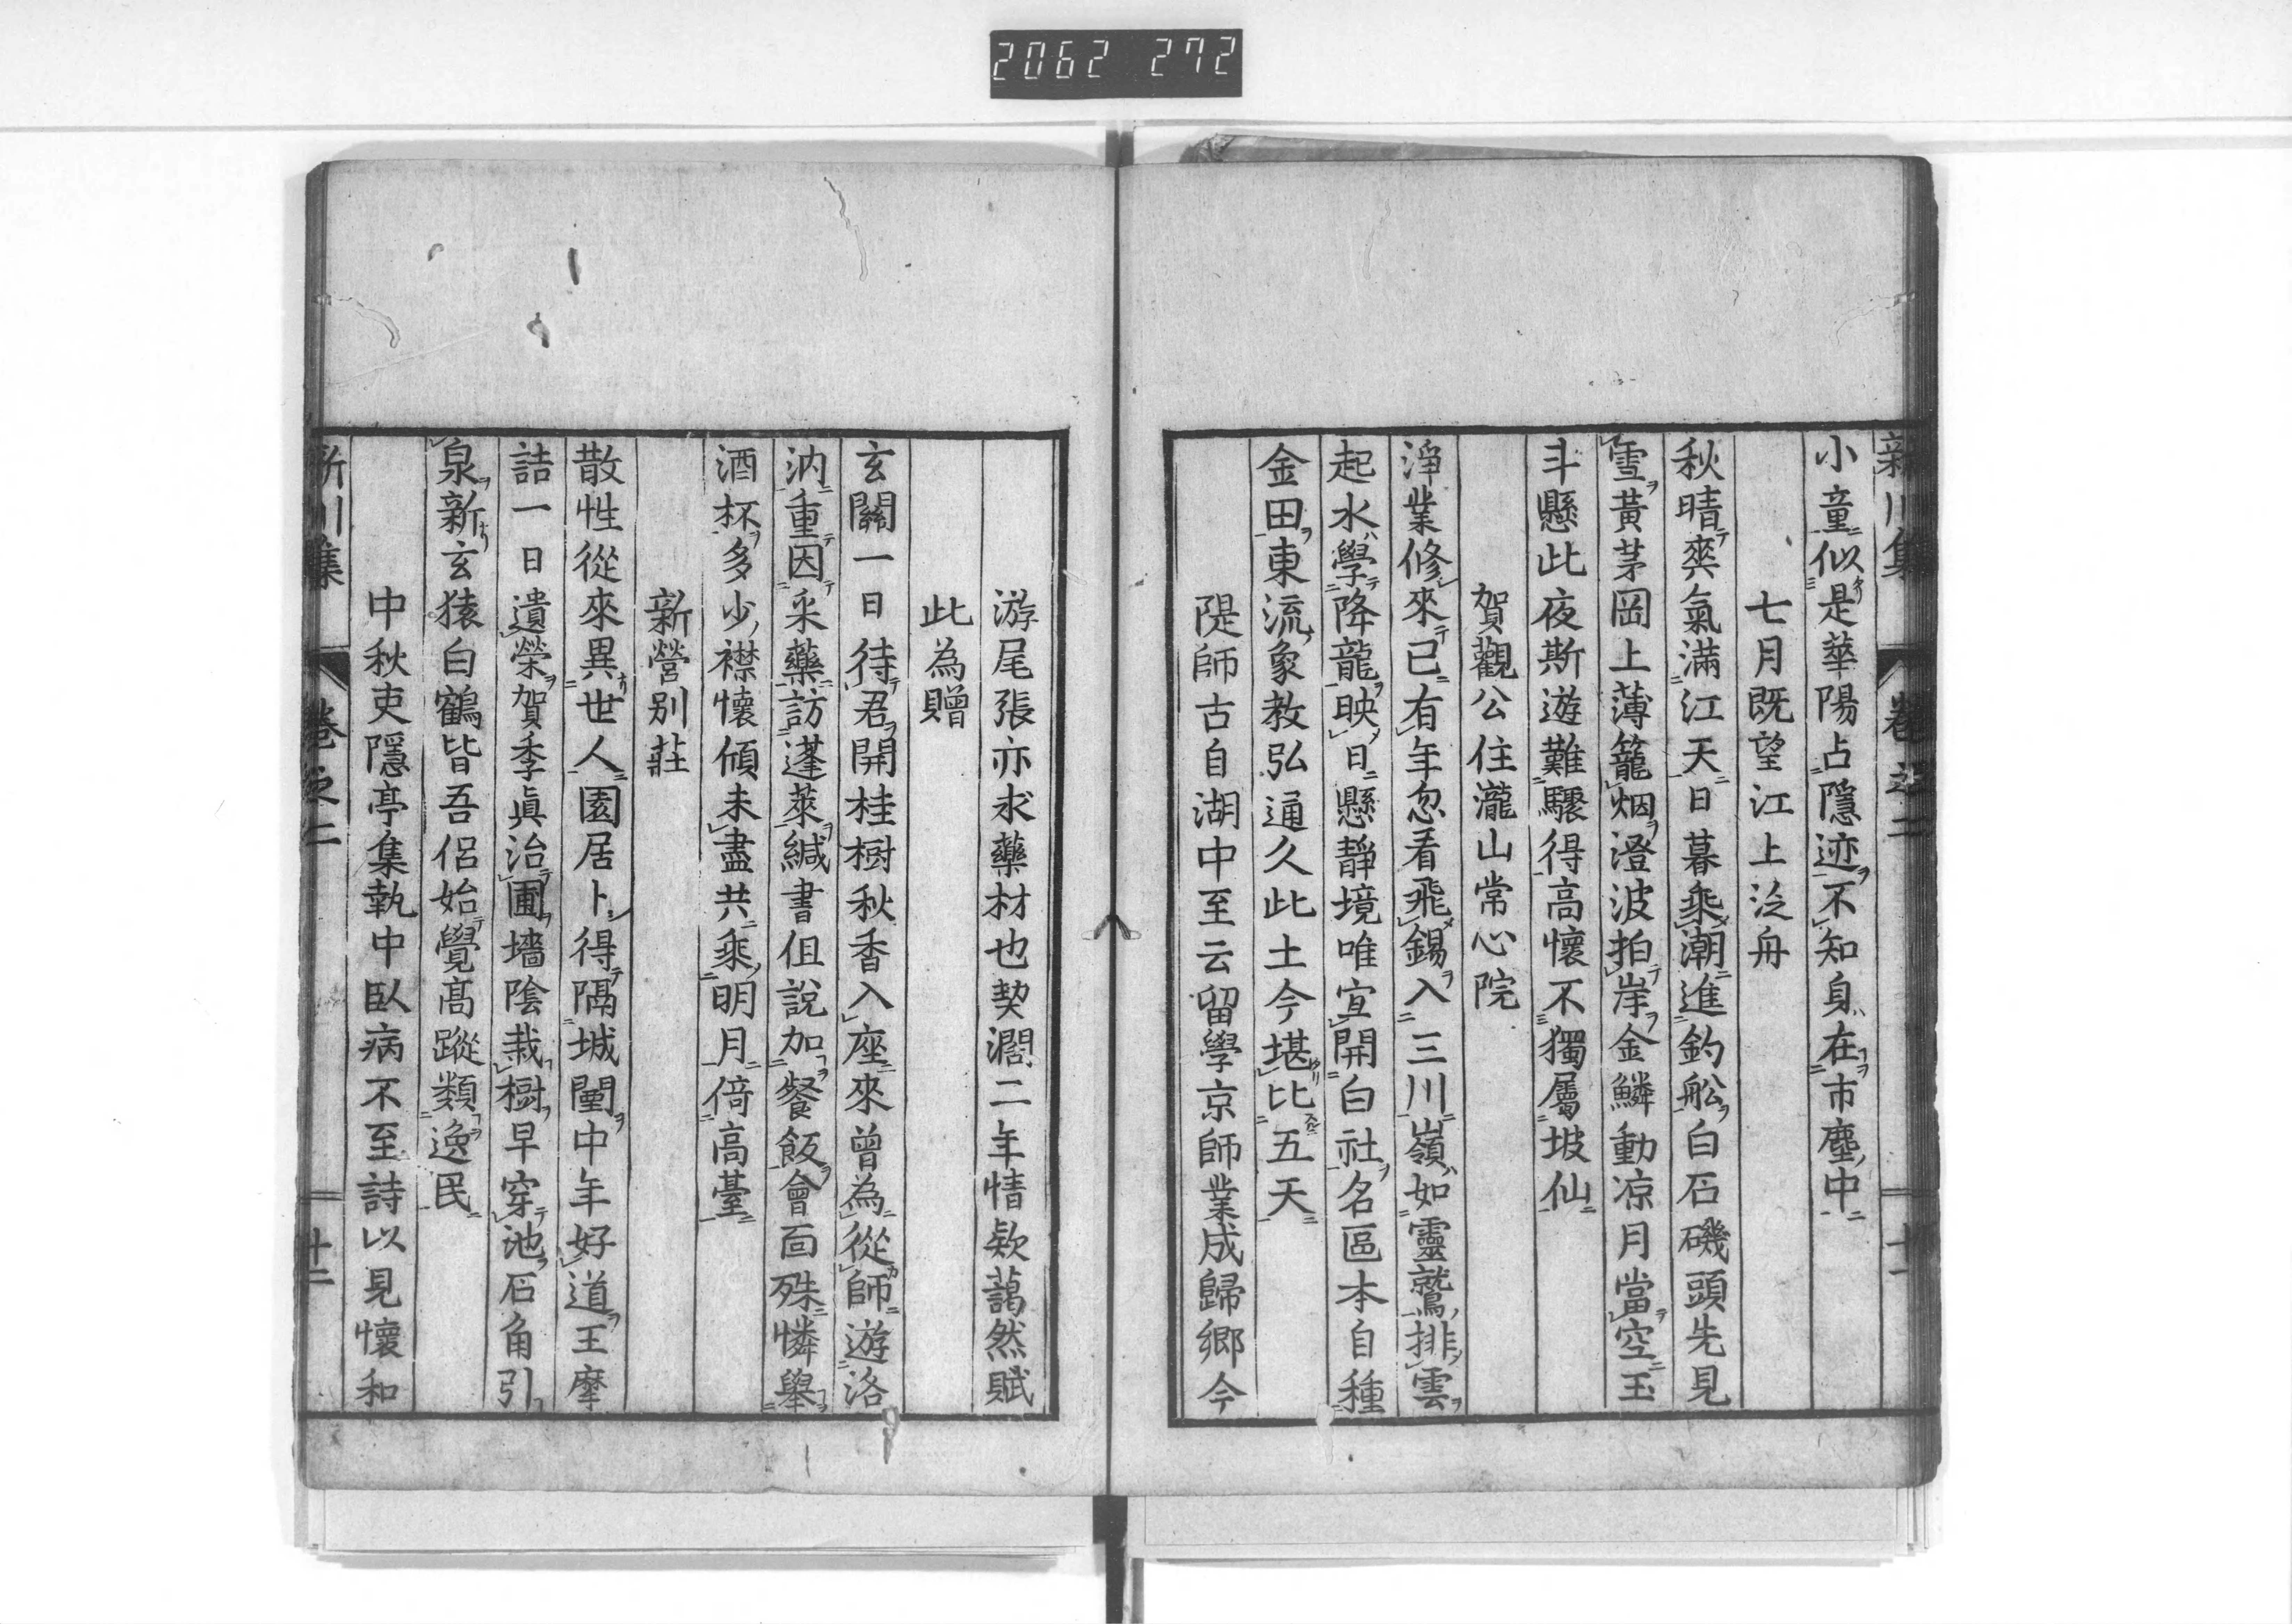 2062 272
新川集 卷之二 十一
小童似是華陽占隱迹不知身在市塵中
七月既望江上泛舟
秋晴爽氣滿江天日暮乘潮進釣舩白石磯頭先見
雪黃茅岡上薄籠烟澄波拍岸金鱗動凉月當空玉
斗懸此夜斯遊難驟得高懷不獨屬坡仙
賀觀公住瀧山常心院
淨業修來已有年忽看飛錫入三川嶺如靈鷲排雲
起水學降龍映日懸靜境唯宜開白社名區本自種
金田東流象教弘通久此土今堪比五天
隄師古自湖中至云留學京師業成歸鄉今
游尾張亦求藥材也契濶二年情欵藹然賦
此為贈
玄關一日待君開桂樹秋香入座來曾為從師遊洛
汭重因采藥訪蓬萊緘書但說加餐飯會面殊憐舉
酒杯多少襟懷傾未盡共乘明月倍高臺
新營別莊
散性從來異世人園居卜得隔城闉中年好道王摩
詰一日遺榮賀季眞治圃墻陰栽樹早穿池石角引
泉新玄猿白鶴皆吾侶始覺高蹤類逸民
中秋吏隱亭集執中臥病不至詩以見懷和
新川集 卷之二 十二